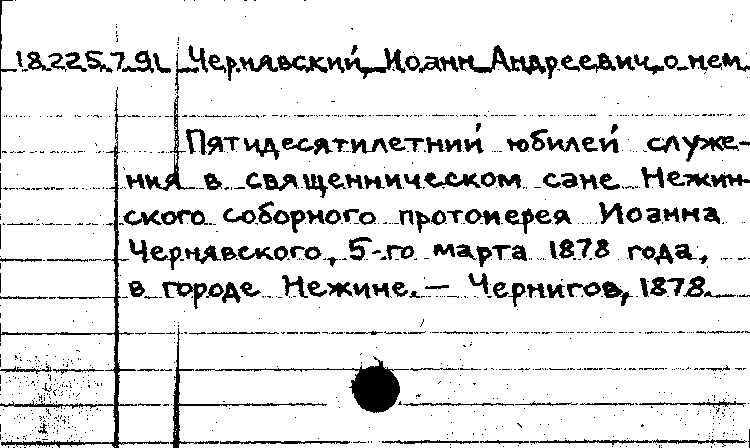 18.225.7.91 Чернявский, Иоанн Андреевич, о нем.
Пятидесятилетний юбилей служе-
ния в священническом сане Нежин-
ского соборного протоиерея Иоанна
Чернявского, 5-го марта 1878 года,
в городе Нежине. — Чернигов, 1878.